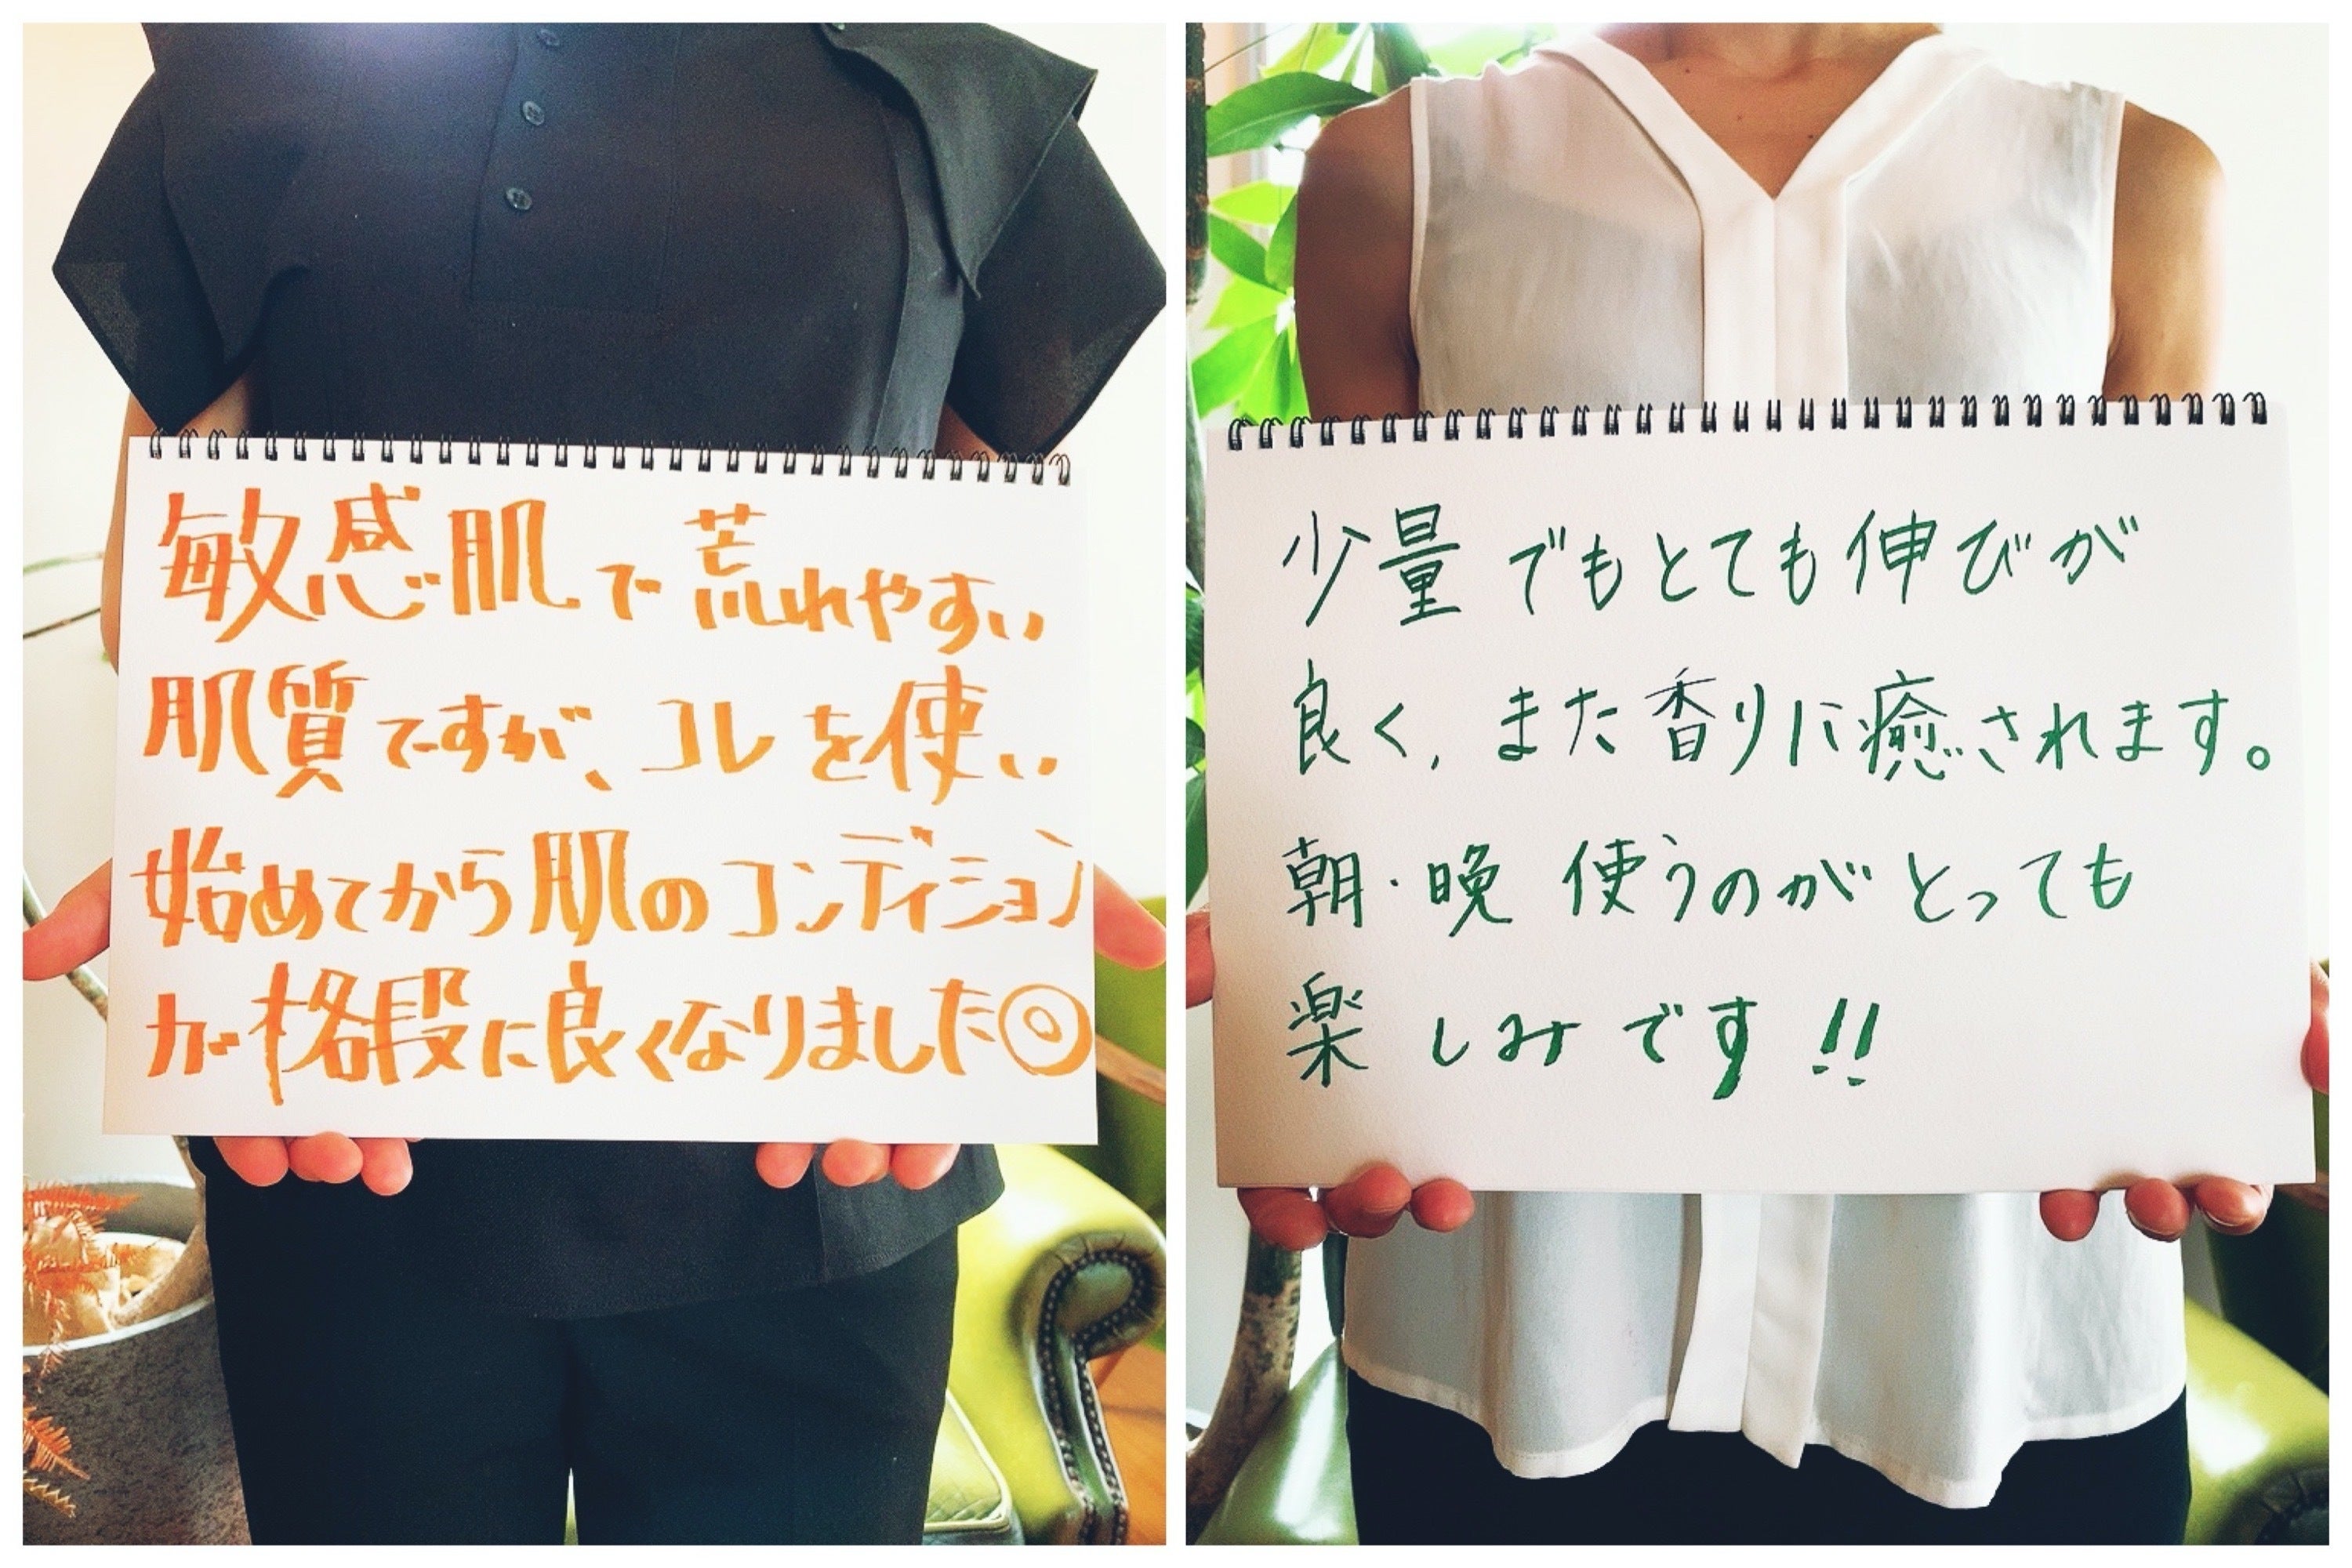 敏感肌で荒れやすい
肌質ですが、コレを使い
始めてから肌のコンディション
が格段に良くなりました◎
少量でもとても伸びが
良く、また香りに癒されます。
朝・晩 使うのがとっても
楽しみです!!